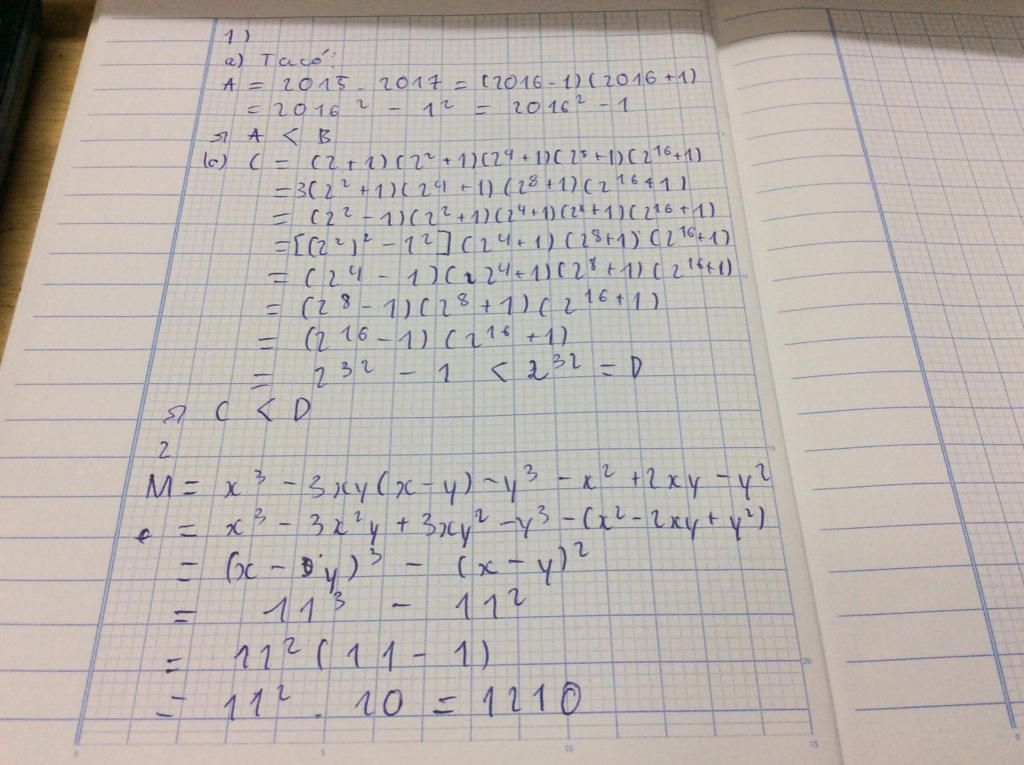 1)
a) Ta có:
A = 2015 . 2017 = (2016-1)(2016+1)
= 2016² - 1² = 2016² - 1
=> A < B
b) C = (2+1)(2²+1)(2⁴+1)(2⁸+1)(2¹⁶+1)
=3(2²+1)(2⁴+1)(2⁸+1)(2¹⁶+1)
= (2²-1)(2²+1)(2⁴+1)(2⁸+1)(2¹⁶+1)
=[(2²)²-1²](2⁴+1)(2⁸+1)(2¹⁶+1)
= (2⁴-1)(2⁴+1)(2⁸+1)(2¹⁶+1)
= (2⁸-1)(2⁸+1)(2¹⁶+1)
= (2¹⁶-1)(2¹⁶+1)
= 2³² - 1 < 2³² = D
=> C < D
2
M = x³ - 3xy(x-y) - y³ - x² + 2xy - y²
= x³ - 3x²y + 3xy² - y³ - (x² - 2xy + y²)
= (x - y)³ - (x-y)²
= 11³ - 11²
= 11²(11-1)
= 11² . 10 = 1210
15
20
0 5 10 15
0